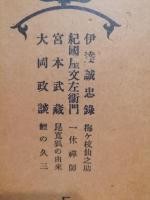 伊達誠忠錄 梅ケ枝仙之助
紀國屋文左衞門 一休禪師
宮本武藏 昆寛狐の由來
大岡政談 鯉の久三